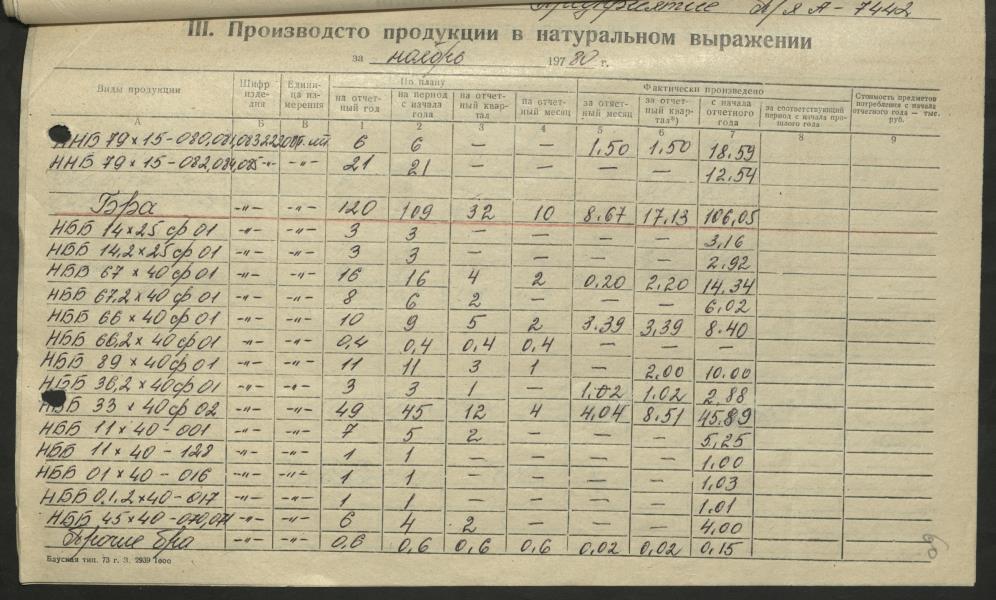 Предприятие п/я А-7442
III. Производсто продукции в натуральном выражении
за ноябрь 1980 г.
Виды продукции | Шифр изделия | Единица измерения | По плану | Фактически произведено | Стоимость предметов потребления с начала отчетного года — тыс. руб.
на отчетный год | на период с начала года | на отчетный квартал | на отчетный месяц | за отчетный месяц | за отчетный квартал*) | с начала отчетного года | за соответствующий период с начала прошлого года
А | Б | В | 1 | 2 | 3 | 4 | 5 | 6 | 7 | 8 | 9
ННБ 79×15-080, | 6 | 6 | — | — | 1.50 | 1.50 | 18.59
ННБ 79×15-082,084,085 -"- | 21 | 21 | — | — | — | 12.54
Бра | -"- | -"- | 120 | 109 | 32 | 10 | 8.67 | 17.13 | 106,05
НББ 14×25 ф 01 | -"- | -"- | 3 | 3 | — | — | — | — | 3,16
НББ 14,2×25 ф 01 | -"- | -"- | 3 | 3 | — | — | — | — | 2.92
НББ 67 × 40 ф 01 | -"- | -"- | 16 | 16 | 4 | 2 | 0,20 | 2,20 | 14.34
НББ 67,2 × 40 ф 01 | -"- | -"- | 8 | 6 | 2 | — | — | — | 6,02
НББ 66 × 40 ф 01 | -"- | -"- | 10 | 9 | 5 | 2 | 3.39 | 3,39 | 8.40
НББ 66,2 × 40 ф 01 | -"- | -"- | 0,4 | 0,4 | 0,4 | 0,4 | — | — | —
НББ 89 × 40 ф 01 | -"- | -"- | 11 | 11 | 3 | 1 | — | 2.00 | 10.00
НББ 36,2 × 40 ф 01 | -"- | -"- | 3 | 3 | 1 | — | 1.02 | 1.02 | 2.88
НББ 33 × 40 ф 02 | -"- | -"- | 49 | 45 | 12 | 4 | 4,04 | 8.51 | 45.89
НББ 11 × 40 - 001 | -"- | -"- | 7 | 5 | 2 | — | — | — | 5,25
НББ 11 × 40 - 128 | -"- | -"- | 1 | 1 | — | — | — | — | 1.00
НББ 01 × 40 - 016 | -"- | -"- | 1 | 1 | — | — | — | — | 1.03
НББ 01.2 × 40 - 017 | -"- | -"- | 1 | 1 | — | — | — | — | 1.01
НББ 45 × 40 - 070,071 | -"- | -"- | 6 | 4 | 2 | — | — | — | 4,00
Прочие бра | -"- | -"- | 0,6 | 0,6 | 0,6 | 0,6 | 0,02 | 0,02 | 0,15
Бауская тип. 73 г. З. 2939 1000